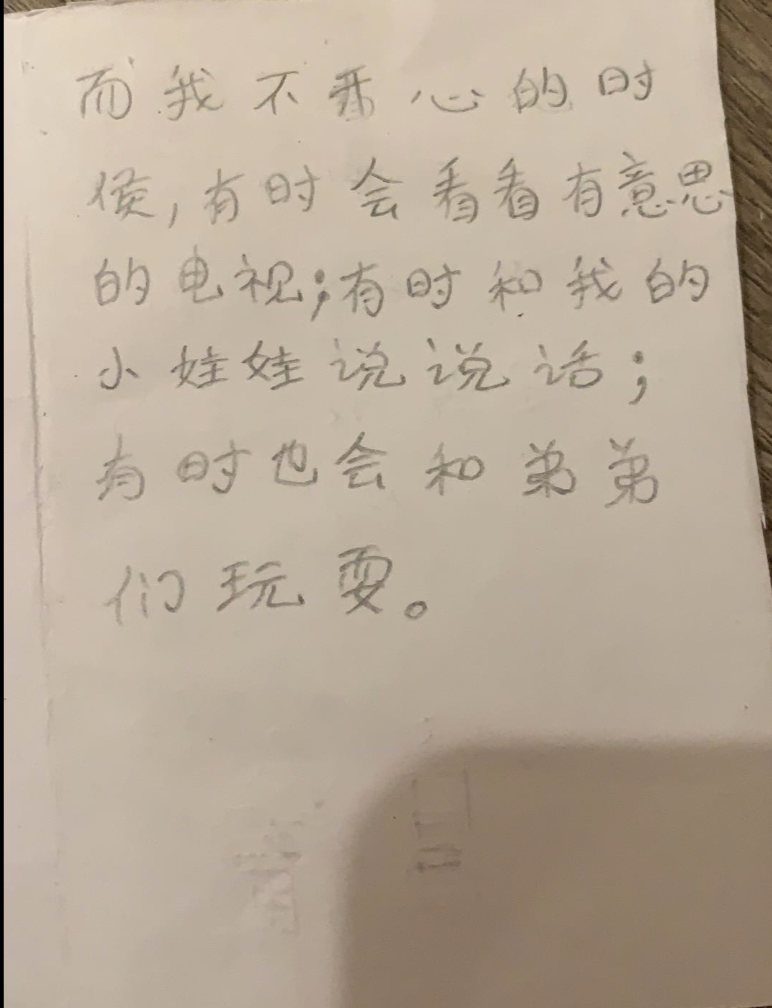 而我不开心的时
候,有时会看看有意思
的电视;有时和我的
小娃娃说说话;
有时也会和弟弟
们玩耍。